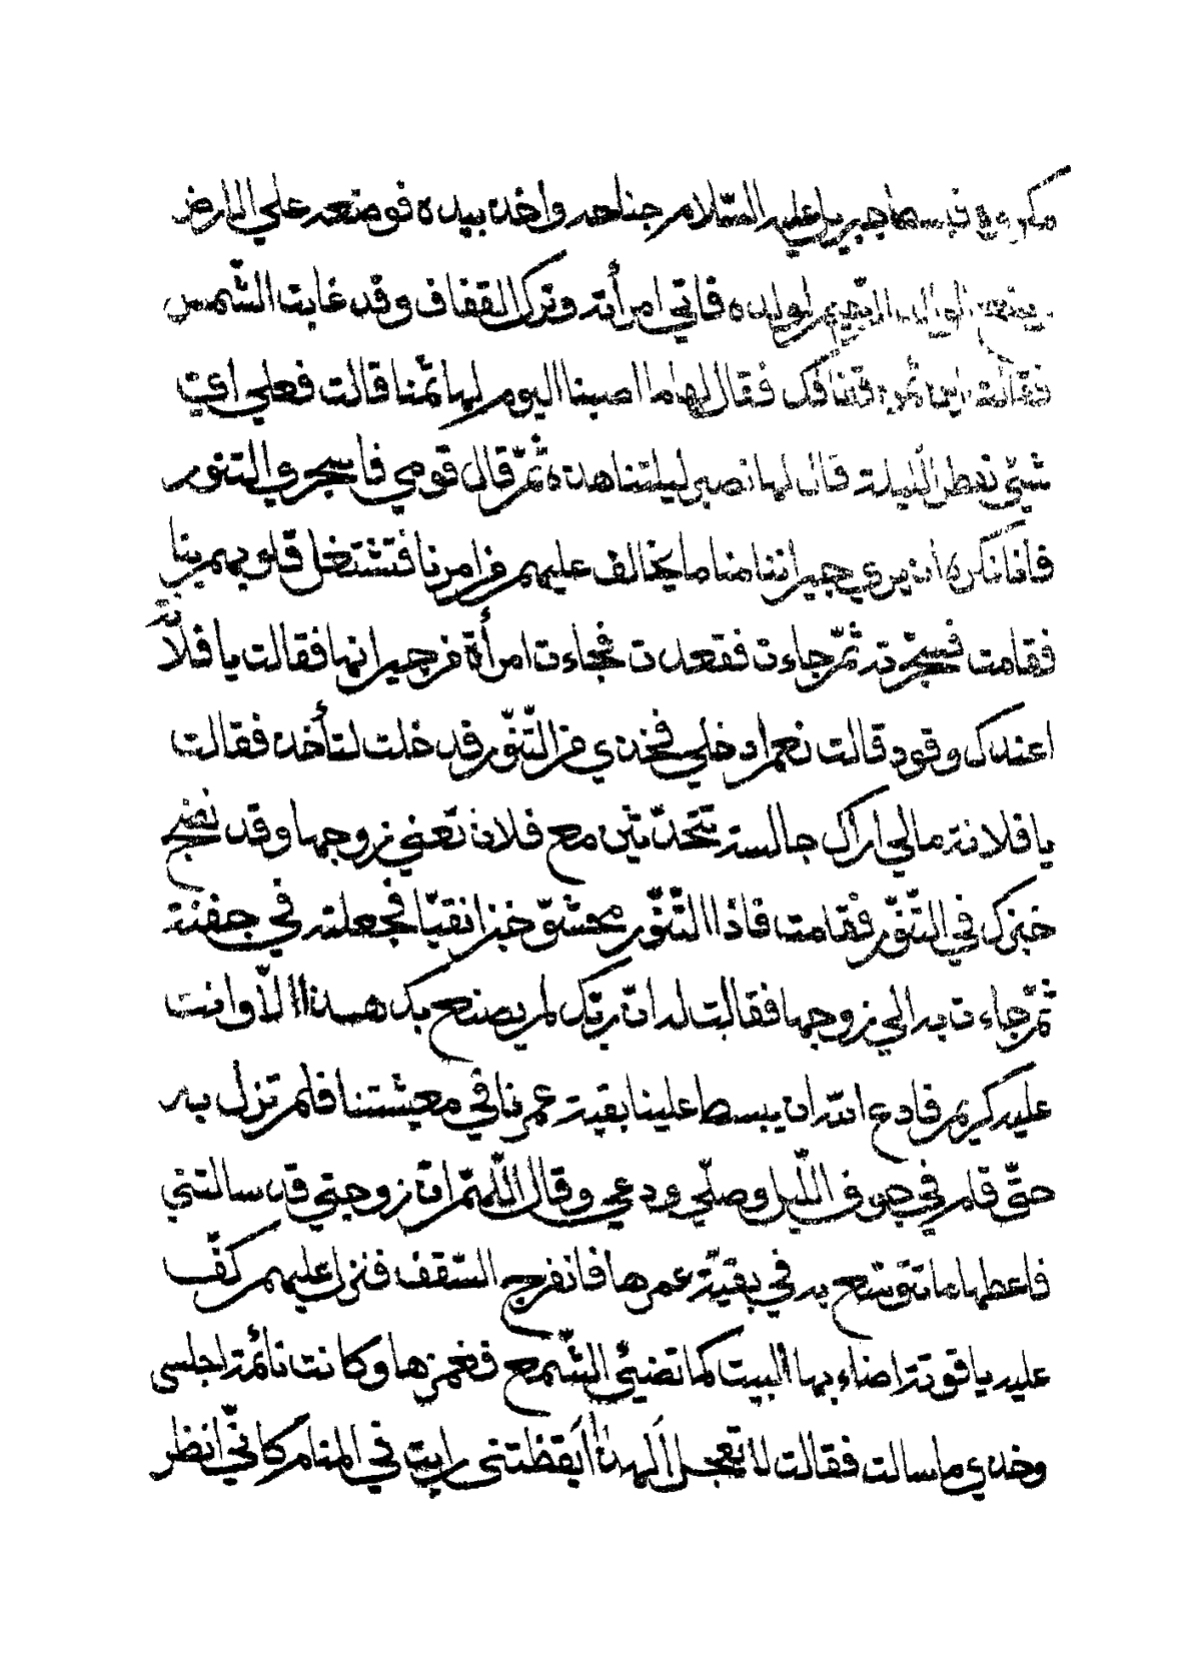 مكروه فبسط جبريل عليه السّلام جناحه واخذ بيده فوضعه علي الارض
الوالد الرّحيم لولده فاتي امرأته وترك القفاف وقد غابت الشّمس
فقالت اين ثمن قفافك فقال لها ما اصبنا اليوم لها ثمنا قالت فعلي ايّ
شئ نفطر اللّيلة قال لها نصبر ليلتنا هذه ثمّ قال قومي فاسجري التنور
فانا نكره ان يري جيراننا منا ما يخالف عليهم من امرنا فتشتغل قلوبهم بنا
فقامت فسجّرته ثمّ جاءت فقعدت فجاءت امرأة من جيرانها فقالت يا فلانة
اعندك وقود قالت نعم ادخلي فخذي من التّنّور فدخلت لتأخذه فقالت
يا فلانة مالي اراك جالسة تتحدّثين مع فلان تعني زوجها وقد نضج
خبزك في التّنّور فقامت فاذا التّنّور محشوّ خبزا نقيّا فجعلته في جفنة
ثمّ جاءت به الي زوجها فقالت له انّ ربّك لم يصنع بك هذا الاّ وانت
عليه كريم فادع الله ان يبسط علينا بقية عمرنا في معيشتنا فلم تزل به
حتّي قام في جوف اللّيل وصلّي ودعي وقال اللّهمّ انّ زوجتي قد سالتني
فاعطها ما تتوسّع به في بقيّة عمرها فانفرج السّقف فنزل عليهم كفّ
عليه ياقوتة اضاء بها البيت كما تضيئ الشّمع فغمزها وكانت نائمة اجلسى
وخذي ما سالت فقالت لا تعجل ألهذا أيقظتنى رايت في المنام كانّي انظر